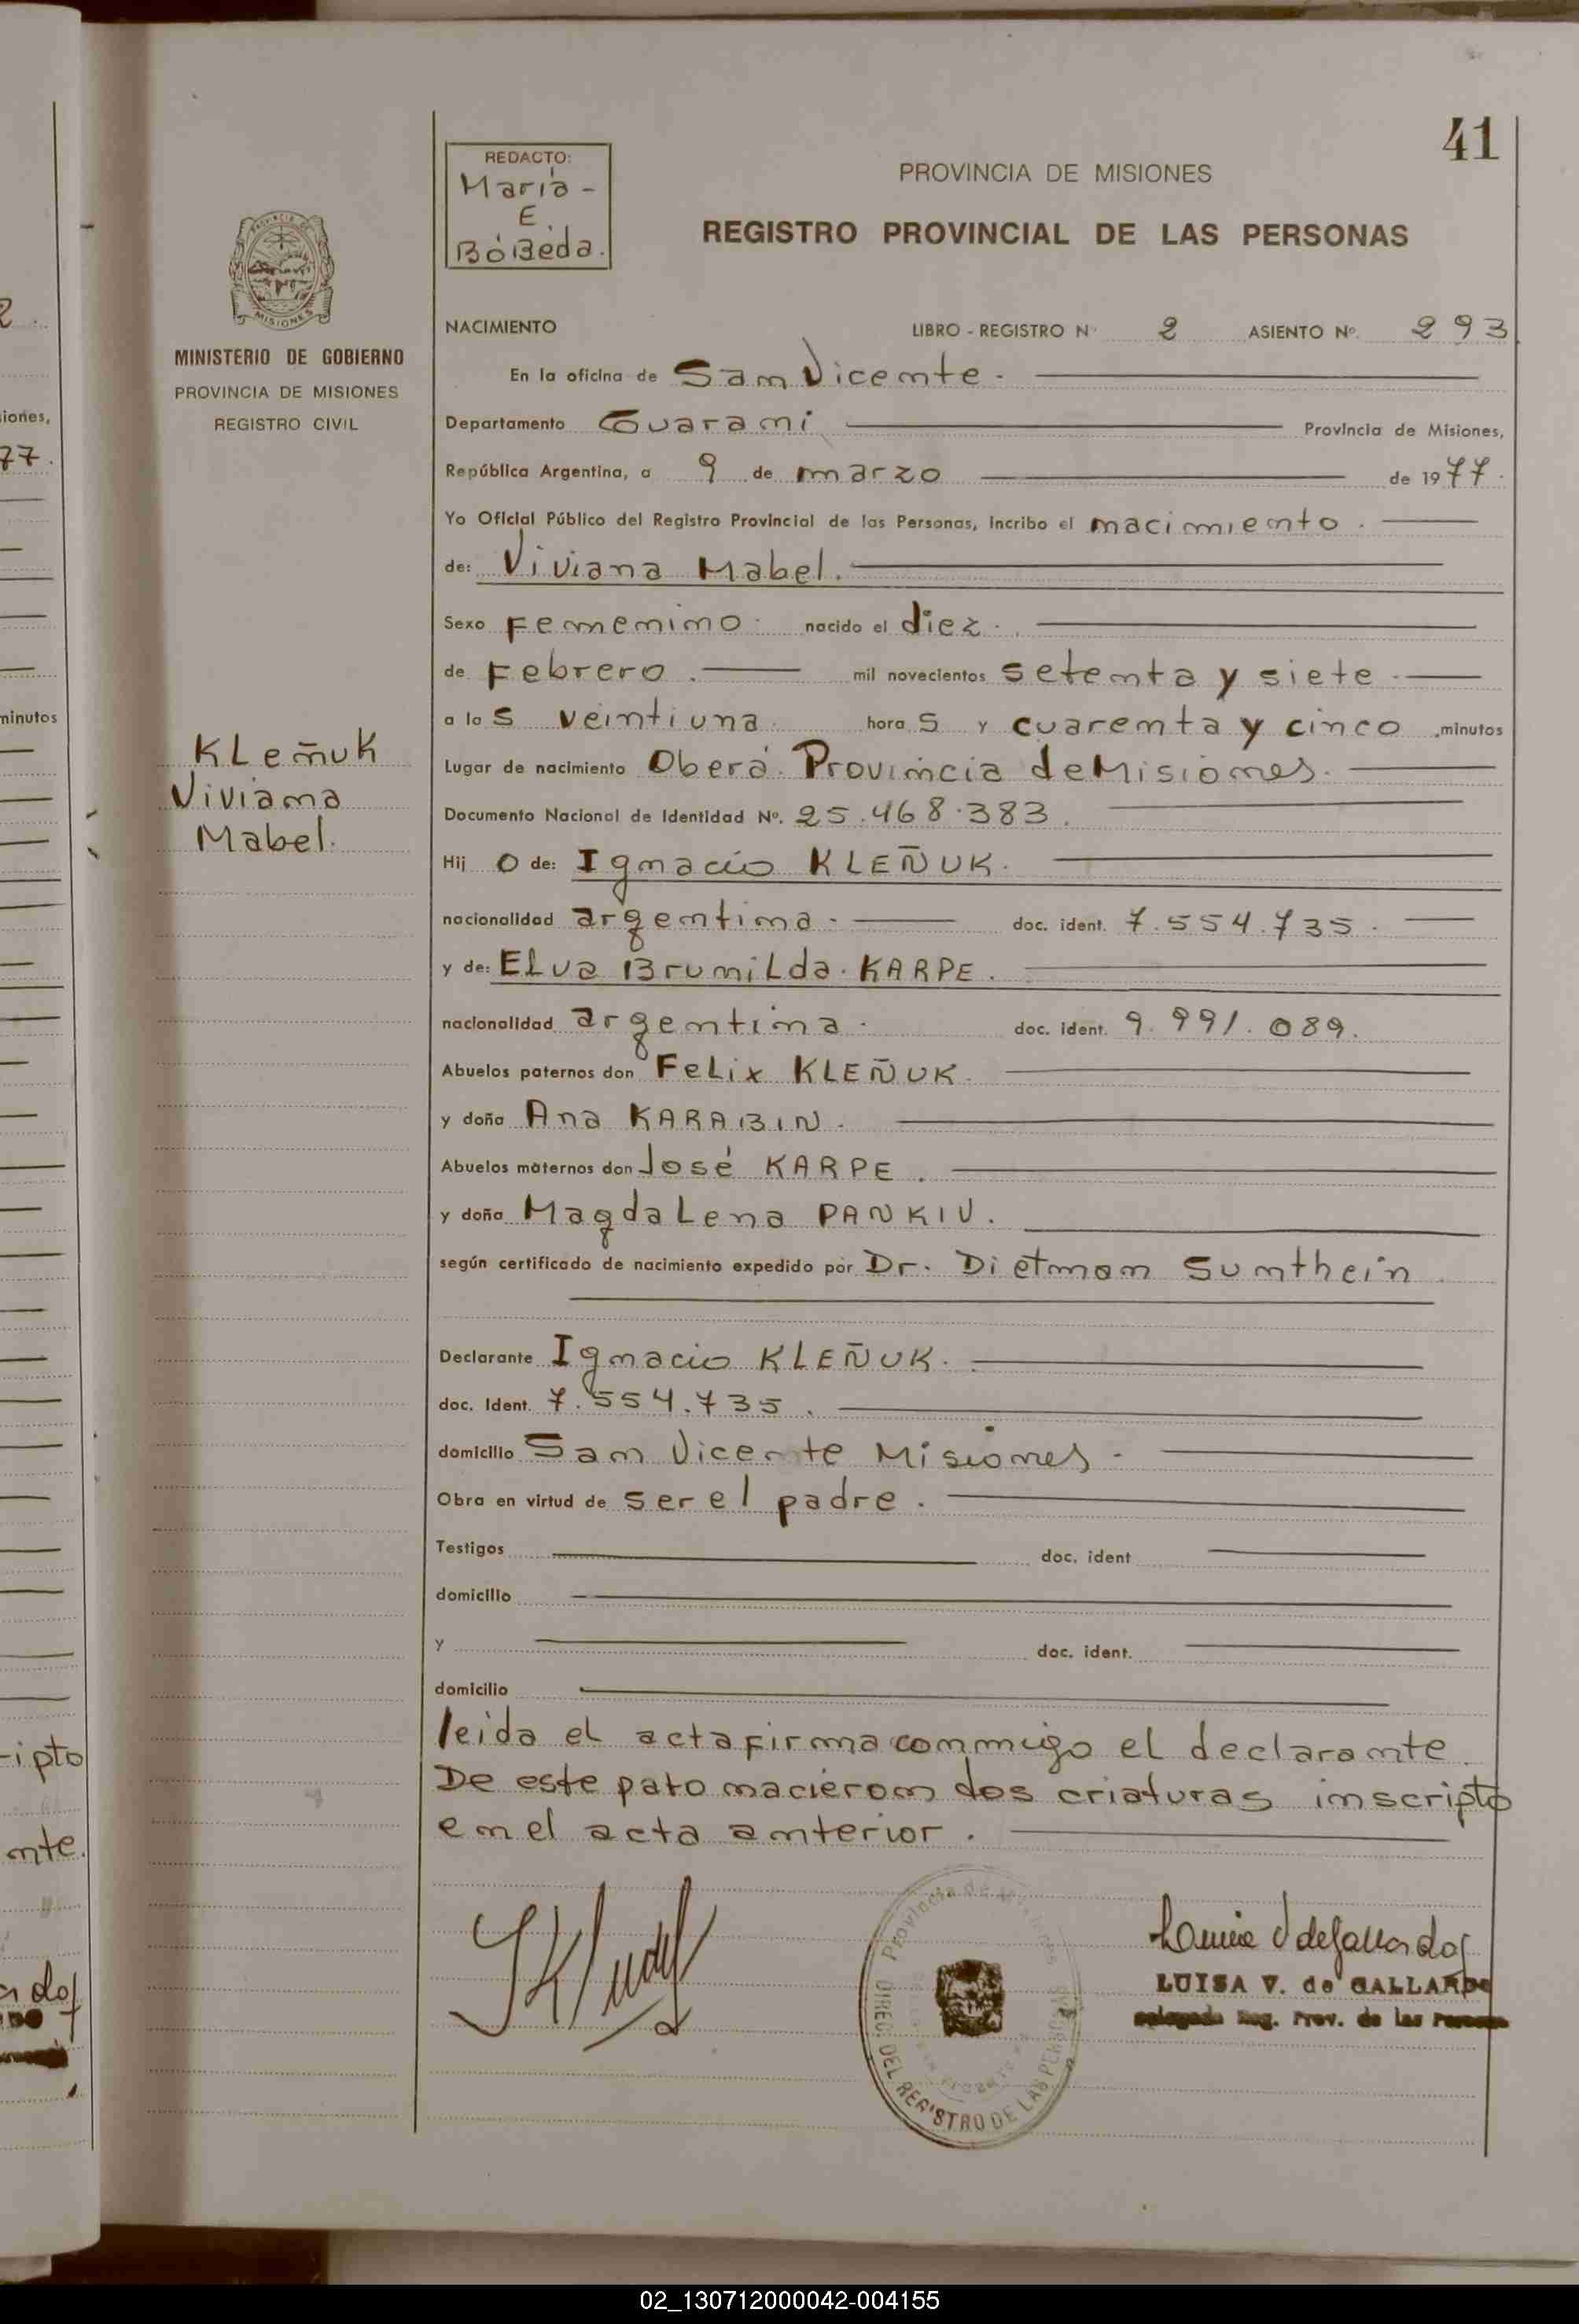 41
REDACTO:
Maria -
E.
BóBeda.
PROVINCIA DE MISIONES
REGISTRO PROVINCIAL DE LAS PERSONAS
MISIONES
MINISTERIO DE GOBIERNO
PROVINCIA DE MISIONES
REGISTRO CIVIL
NACIMIENTO LIBRO - REGISTRO Nº 2 ASIENTO Nº. 293
En la oficina de San Vicente.
Departamento Guarani Provincia de Misiones,
República Argentina, a 9 de marzo de 1977.
Yo Oficial Público del Registro Provincial de las Personas, incribo el nacimiento.
de: Viviana Mabel.
Sexo Femenino. nacido el diez.
de Febrero. mil novecientos setenta y siete.
a las veintiuna. horas y cuarenta y cinco minutos
Lugar de nacimiento Oberá. Provincia de Misiones.
Documento Nacional de Identidad Nº. 25.468.383.
Hij o de: Ignacio KLEÑUK.
nacionalidad argentina. doc. ident. 7.554.735.
y de: Elva Brunilda. KARPE.
nacionalidad argentina. doc. ident. 9.991.089.
Abuelos paternos don Felix KLEÑUK.
y doña Ana KARABIN.
Abuelos maternos don José KARPE.
y doña Magdalena PANKIV.
según certificado de nacimiento expedido por Dr. Dietman Sunthein
Declarante Ignacio KLEÑUK.
doc. Ident. 7.554.735.
domicilio San Vicente Misiones.
Obra en virtud de ser el padre.
Testigos doc. ident
domicilio
y doc. ident.
domicilio
leida el acta firma conmigo el declarante.
De este pato nacieron dos criaturas inscripto
en el acta anterior.
Kleñuk
Viviana
Mabel.
Provincia de Misiones
DIREC. DEL REGISTRO DE LAS PERSONAS
LUISA V. de GALLARDO
Delegada Reg. Prov. de las Personas
iones,
77.
minutos
ipto
nte.
02_130712000042-004155